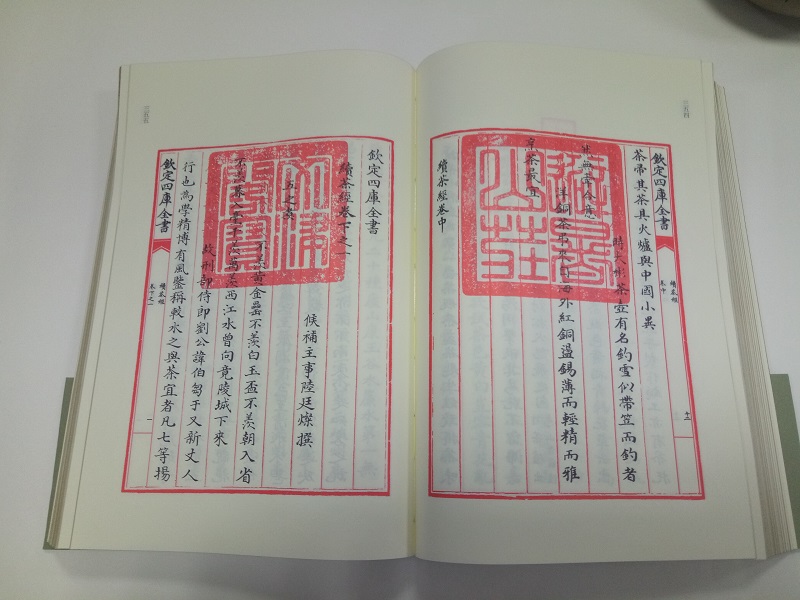 三五四
欽定四庫全書
續茶經
卷中
十二
茶帚其茶具火爐與中國小異
時大彬茶壺有名釣雪似帶笠而釣者
然無牽合意
羊銅茶吊來自海外紅銅盪錫薄而輕精而雅
烹茶最宜
續茶經卷中
避暑山莊
三五五
欽定四庫全書
續茶經卷下之一
候補主事陸廷燦撰
五之煮
不羨黃金罍不羨白玉盃不羨朝入省
不羨暮入臺千羨萬羨西江水曾向竟陵城下來
故刑部侍郎劉公諱伯芻于又新丈人
行也為學精博有風鑒稱較水之與茶宜者凡七等揚
欽定四庫全書
續茶經
卷下之一
一